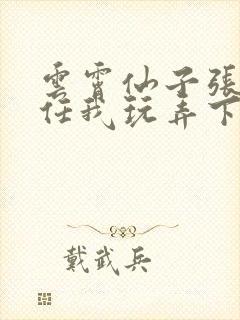 雲霄仙子張
任我玩弄下
戴武兵